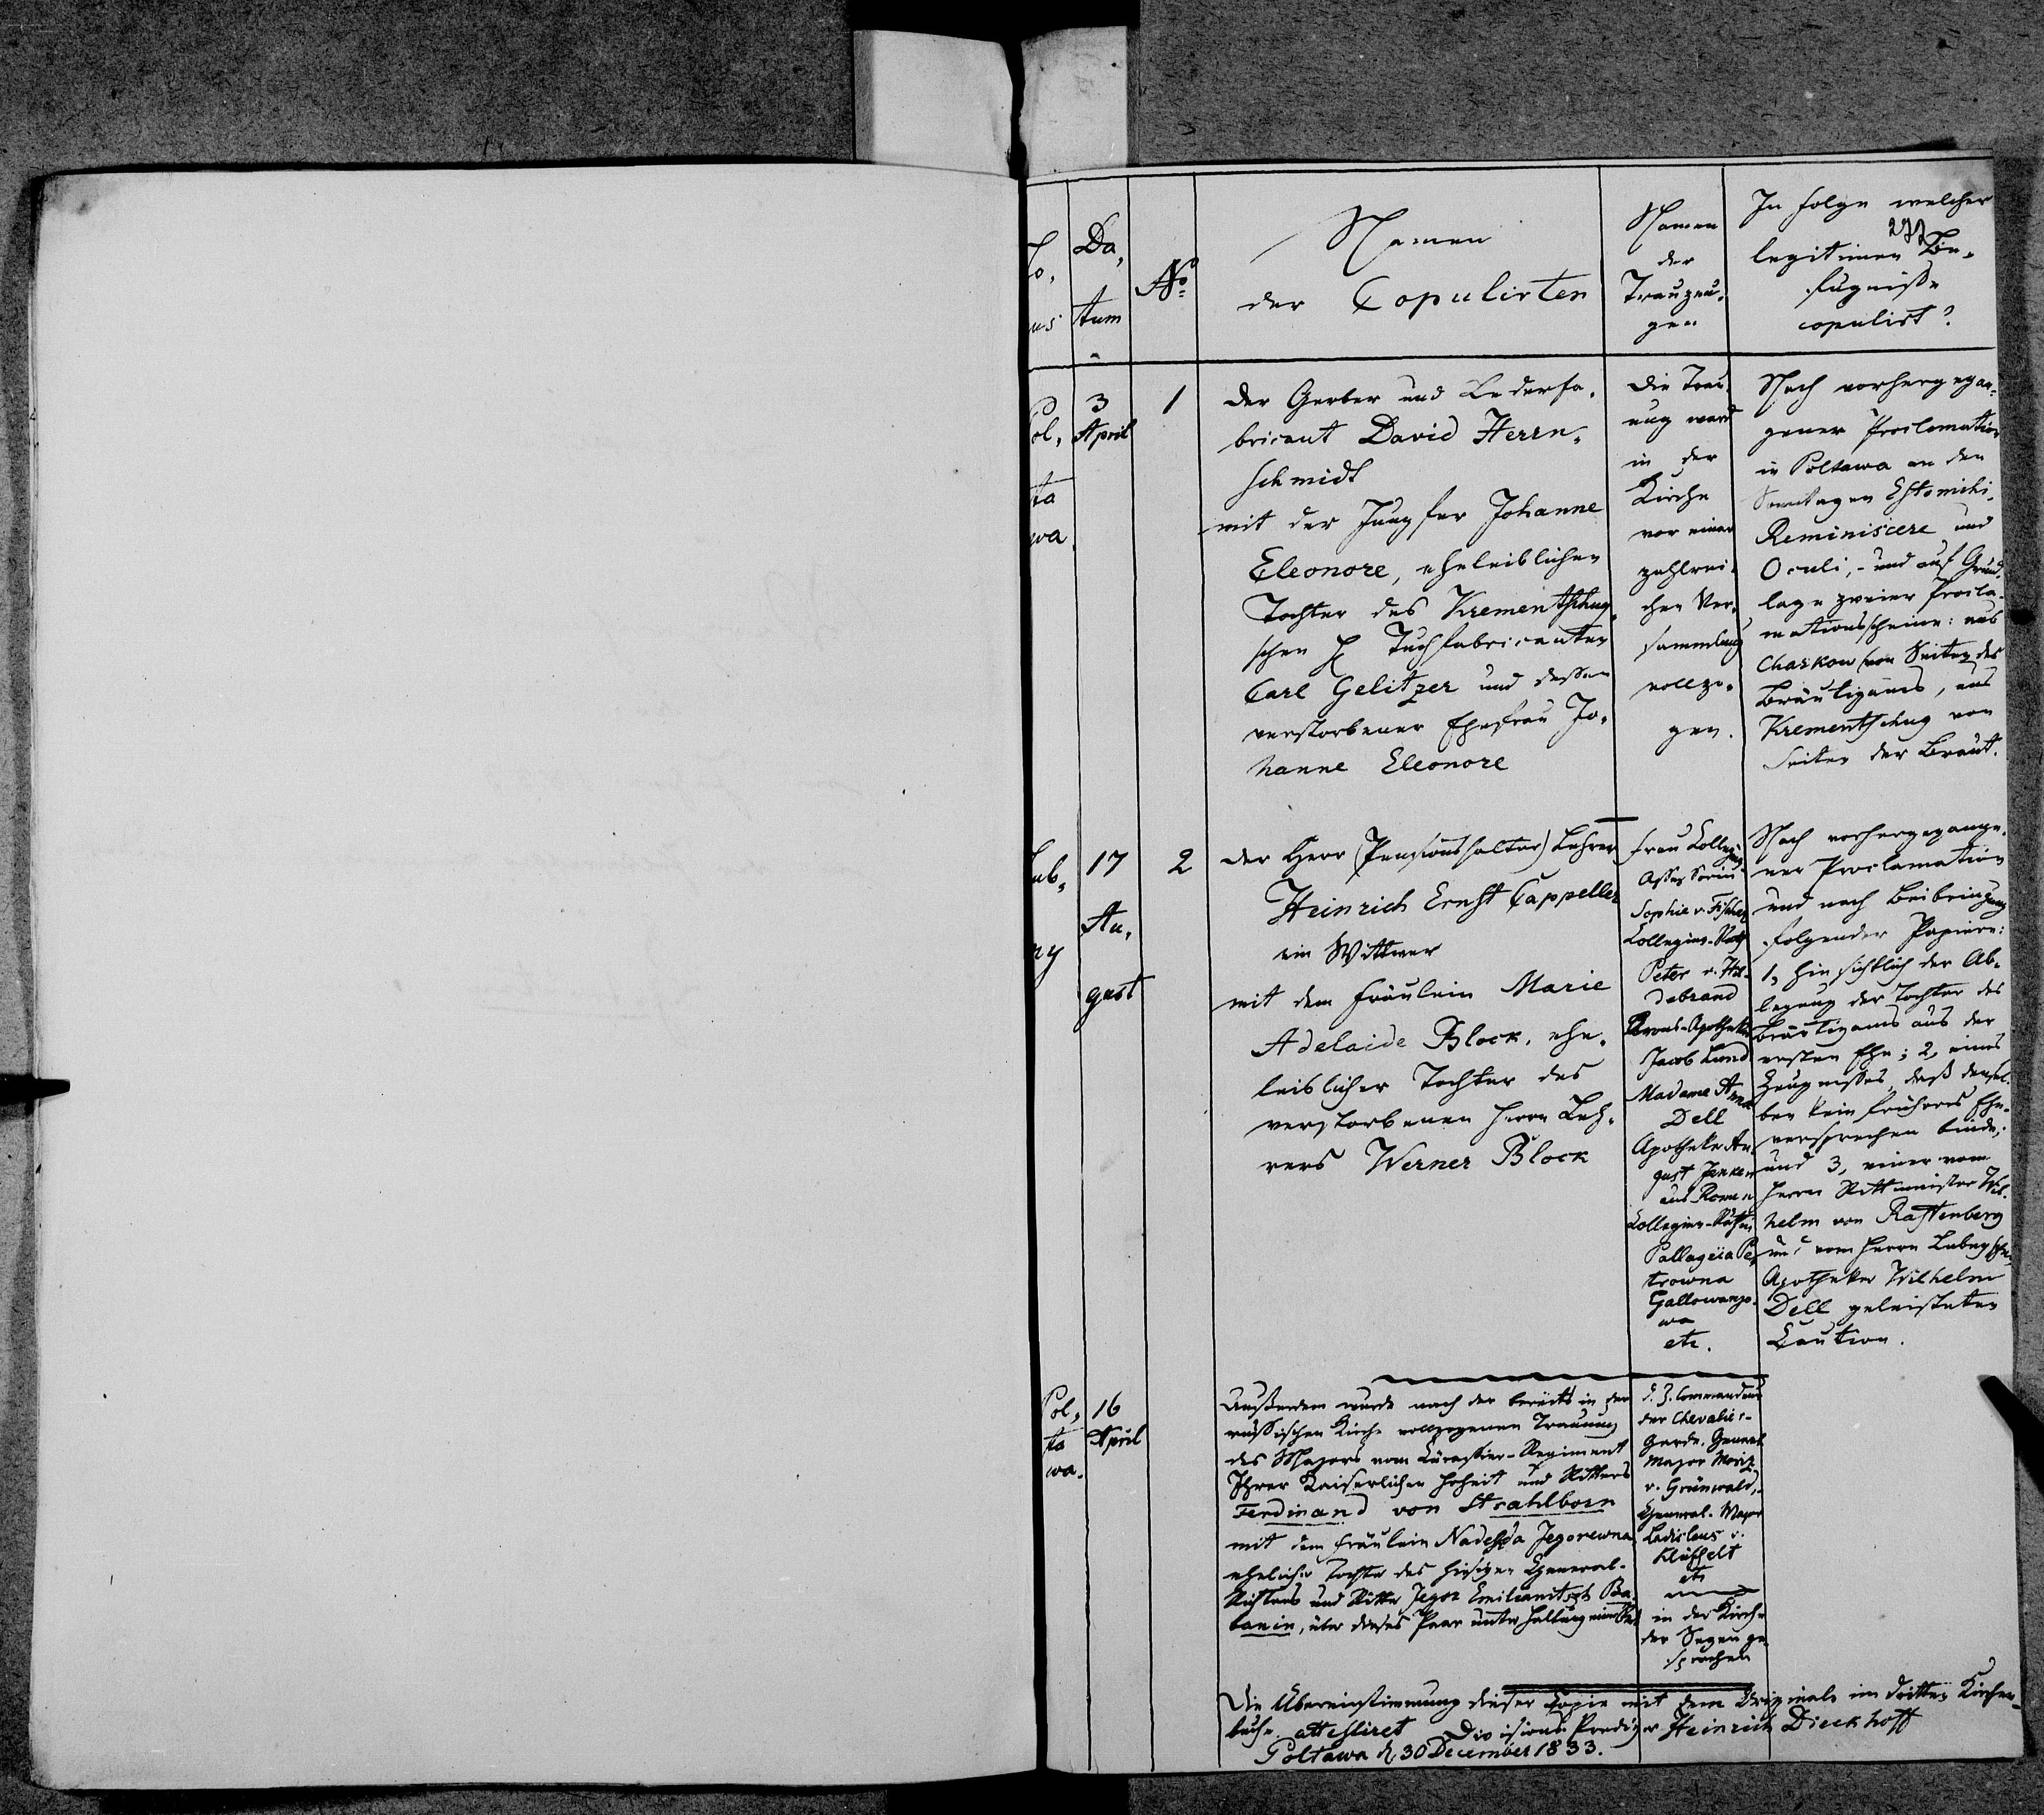 Da,
tum
No
Namen
der Copulirten
Namen
der
Trauzeu,
gen
In Folge welcher
272
legitimen Be,
fugniße
copulirt?
Pol,
ta
wa.
3
April
1
der Gerber und Lederfa,
bricant David Herrn,
schmidt
mit der Jungfer Johanne
Eleonore, eheleiblichen
Tochter des Krementschug,
schen Tuchfabricanten
Carl Gelitzer und deßen
verstorbener Ehefrau Jo,
hanne Eleonore
Die Trau,
ung ward
in der
Kirche
vor einer
zahlrei,
chen Ver,
sammlung
vollzo,
gen.
Nach vorhergegan,
gener Proclamation
in Poltawa an den
Sonntagen Estomihi,
Reminiscere und
Oculi, - und auf Grund,
lage zweier Procla,
mationsscheine: aus
Charkow von Seiten des
Bräutigams, aus
Krementschug von
Seiten der Braut.
Lub,
ny
17
Au,
gust
2
der Herr (Pensionshalter) Lehrer
Heinrich Ernst Cappeller
ein Wittwer
mit dem Fräulein Marie
Adelaide Block, ehe,
leiblicher Tochter des
verstorbenen Herrn Leh,
rers Werner Block
Frau Collegien
Assessorin
Sophie v. Fischer
Collegien-Rath
Peter v. Hil-
debrand
Krons-Apotheker
Jacob Lund
Madame Anna
Dell
Apotheker Au,
gust Janken
aus Romen
Collegien-Räthin
Pallageia Pe,
trowna
etc.
Nach vorhergegange,
ner Proclamation
und nach Beibringung
folgender Papiere:
1, hinsichtlich der Ab,
legung der Tochter des
Bräutigams aus der
ersten Ehe; 2, eines
Zeugnißes, daß densel,
ben kein früheres Ehe,
versprechen binde;
und 3, einer vom
Herrn Rittmeister Wil,
helm von Rastenberg
und vom Herrn Lubnyschen
Apotheker Wilhelm
Dell geleisteten
Caution.
Pol,
ta
wa.
16
April
Außerdem wurde nach der bereits in der
russischen Kirche vollzogenen Trauung
des Majors vom Cürassier-Regiment
Ihrer Kaiserlichen Hoheit und Ritters
Ferdinand von Strahlborn
mit dem Fräulein Nadeshda Jegorewna
ehelicher Tochter des hiesigen General-
Richters und Ritter Jegor Emilianitsch Ba,
banin, über dieses Paar unter Haltung einer Rede
d. Z. Commandeur
der Chevalier-
Garde. General
Major Moriz
v. Grünwald,
General-Major
Ladislaus v.
etc
in der Kirche
der Segen ge,
sprochen
Die Übereinstimmung dieser Copie mit dem Originale im dritten Kirchen-
buche attestiret Divisions Prediger Heinrich Dieckhoff
Poltawa d. 30 December 1833.